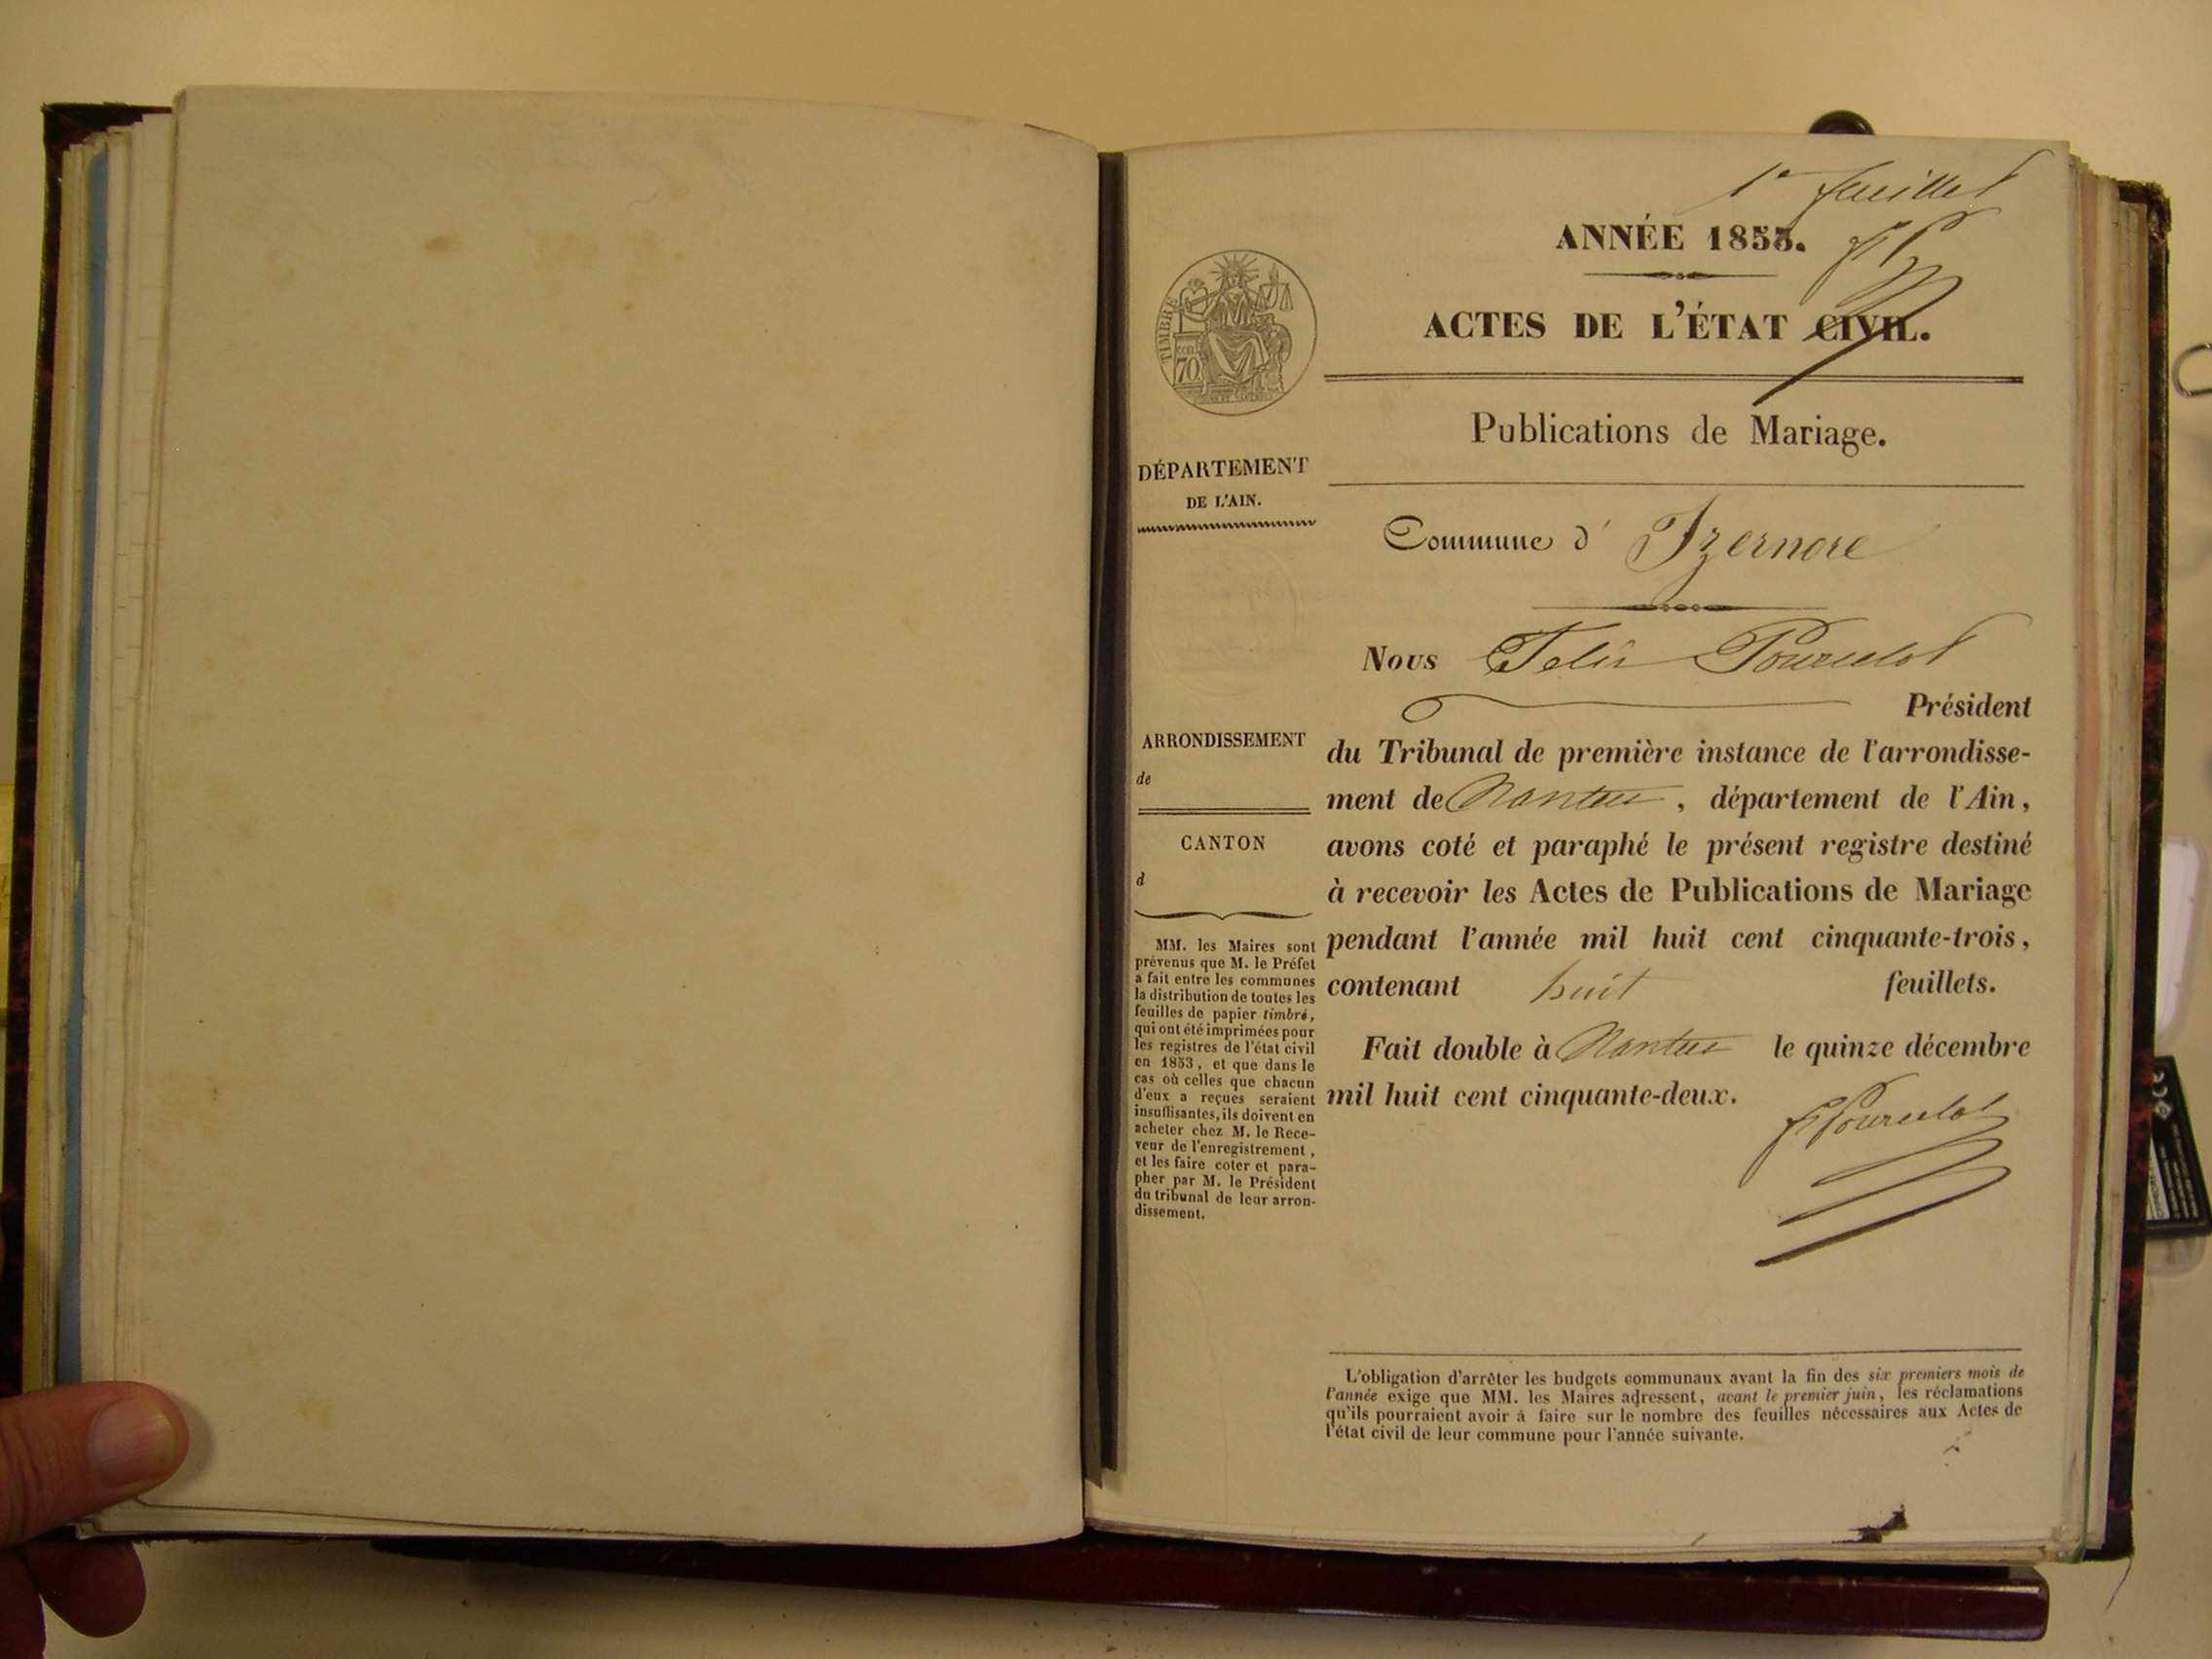 1er feuillet
ANNÉE 1853.
ACTES DE L'ÉTAT CIVIL.
Publications de Mariage.
Commune d' Izernore
Nous Félix Pourcelot
Président
du Tribunal de première instance de l'arrondisse-
ment de Nantua, département de l'Ain,
avons coté et paraphé le présent registre destiné
à recevoir les Actes de Publications de Mariage
pendant l'année mil huit cent cinquante-trois,
contenant huit feuillets.
Fait double à Nantua le quinze décembre
mil huit cent cinquante-deux.
TIMBRE
70
DÉPARTEMENT
DE L'AIN.
ARRONDISSEMENT
de
CANTON
d
MM. les Maires sont
prévenus que M. le Préfet
a fait entre les communes
la distribution de toutes les
feuilles de papier timbré,
qui ont été imprimées pour
les registres de l'état civil
en 1853, et que dans le
cas où celles que chacun
d'eux a reçues seraient
insuffisantes, ils doivent en
acheter chez M. le Rece-
veur de l'enregistrement,
et les faire coter et para-
pher par M. le Président
du tribunal de leur arron-
dissement.
L'obligation d'arrêter les budgets communaux avant la fin des six premiers mois de
l'année exige que MM. les Maires adressent, avant le premier juin, les réclamations
qu'ils pourraient avoir à faire sur le nombre des feuilles nécessaires aux Actes de
l'état civil de leur commune pour l'année suivante.